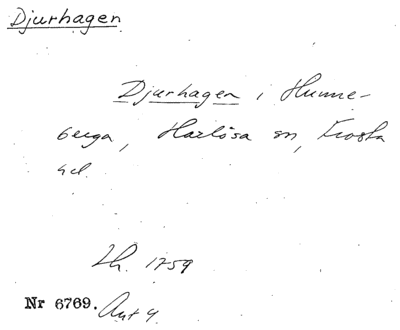 Djurhagen
Djurhagen i Hunne-
berga, Harlösa sn, Frosta
hd.
Lh. 1759
Nr 6769. Avt 4